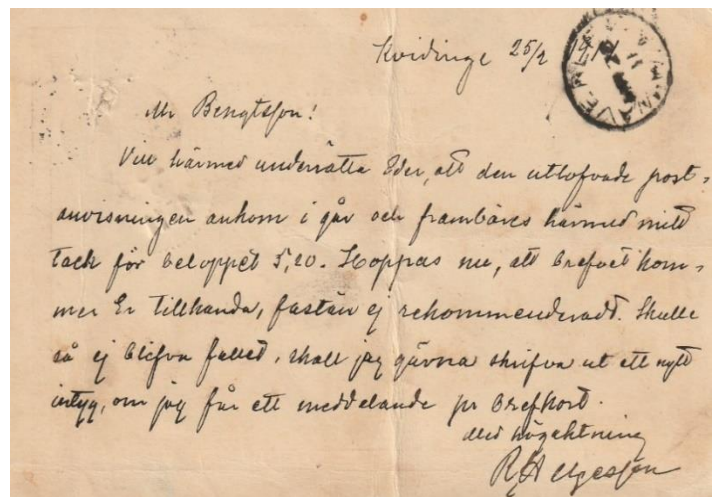 Kvidinge 25/2
Mr Bengtsson!
Vill härmed underrätta Eder, att den utlofvade post-
anvisningen ankom i går och frambäres härmed mitt
tack för beloppet 5,20. Hoppas nu, att brefvet kom-
mer Er tillhanda, fastän ej rekommenderadt. Skulle
så ej blifva fallet, skall jag gärna skrifva ut ett nytt
intyg, om jag får ett meddelande pr brefkort.
Med högaktning